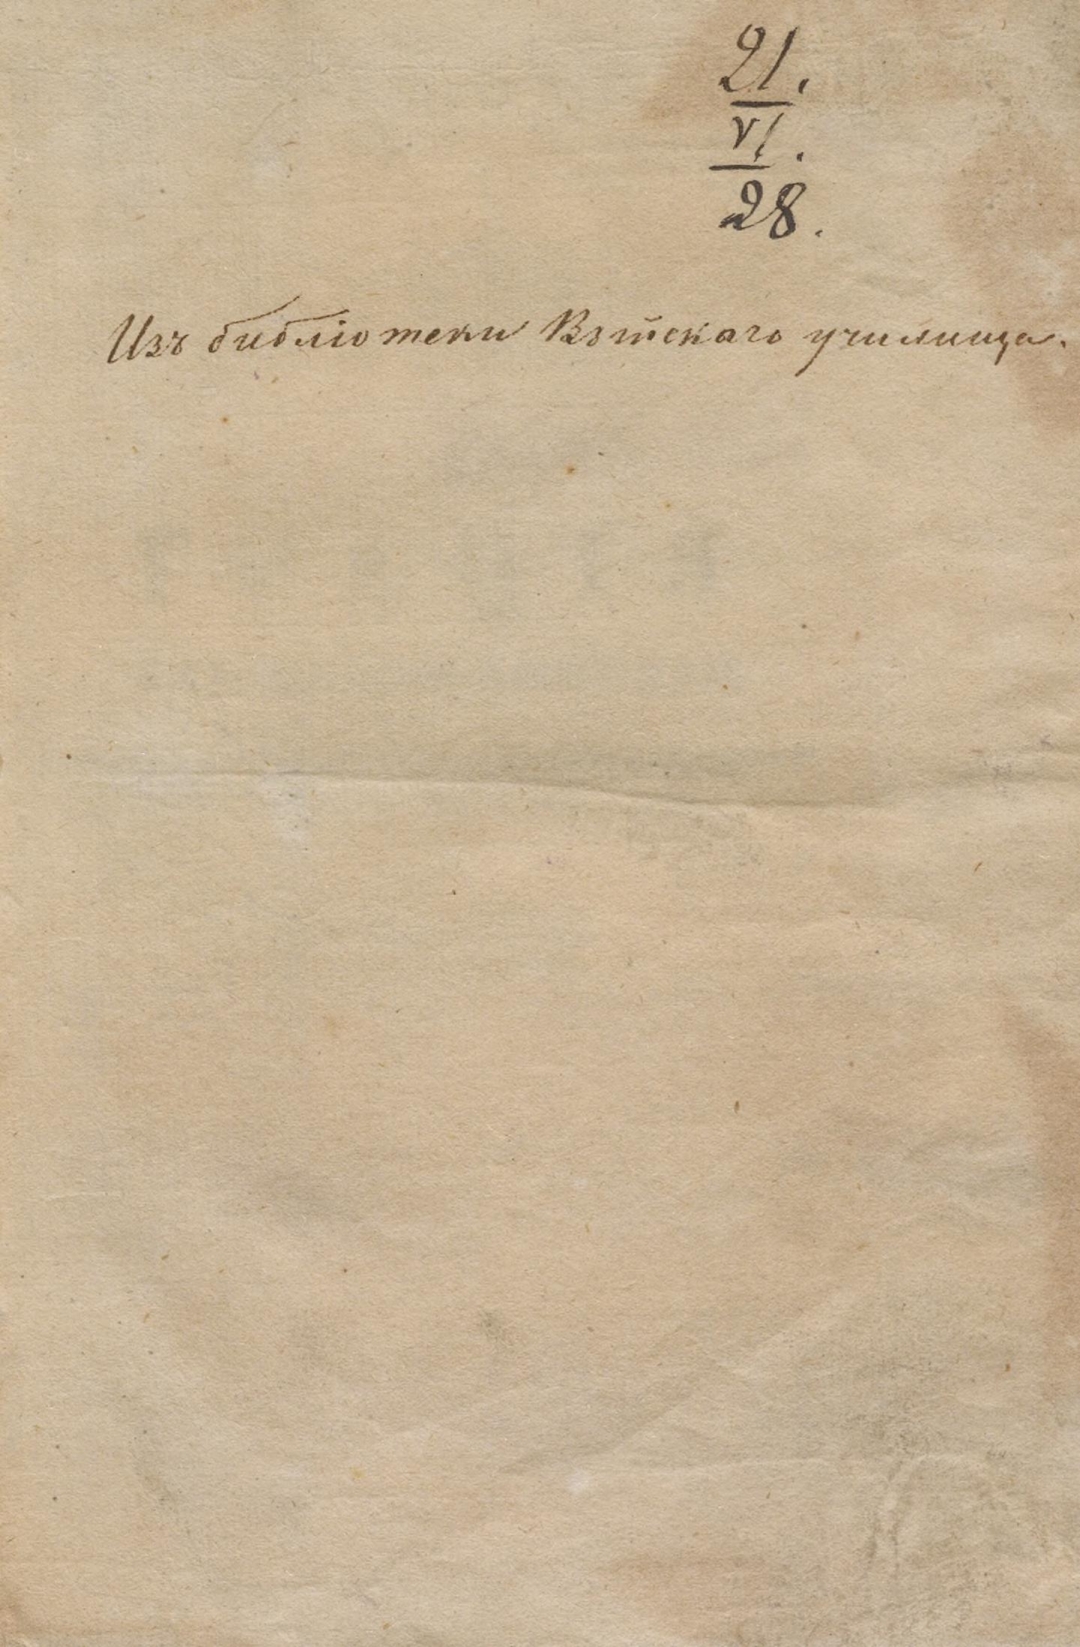 21.
VI.
28.
Изъ библіотеки училища.